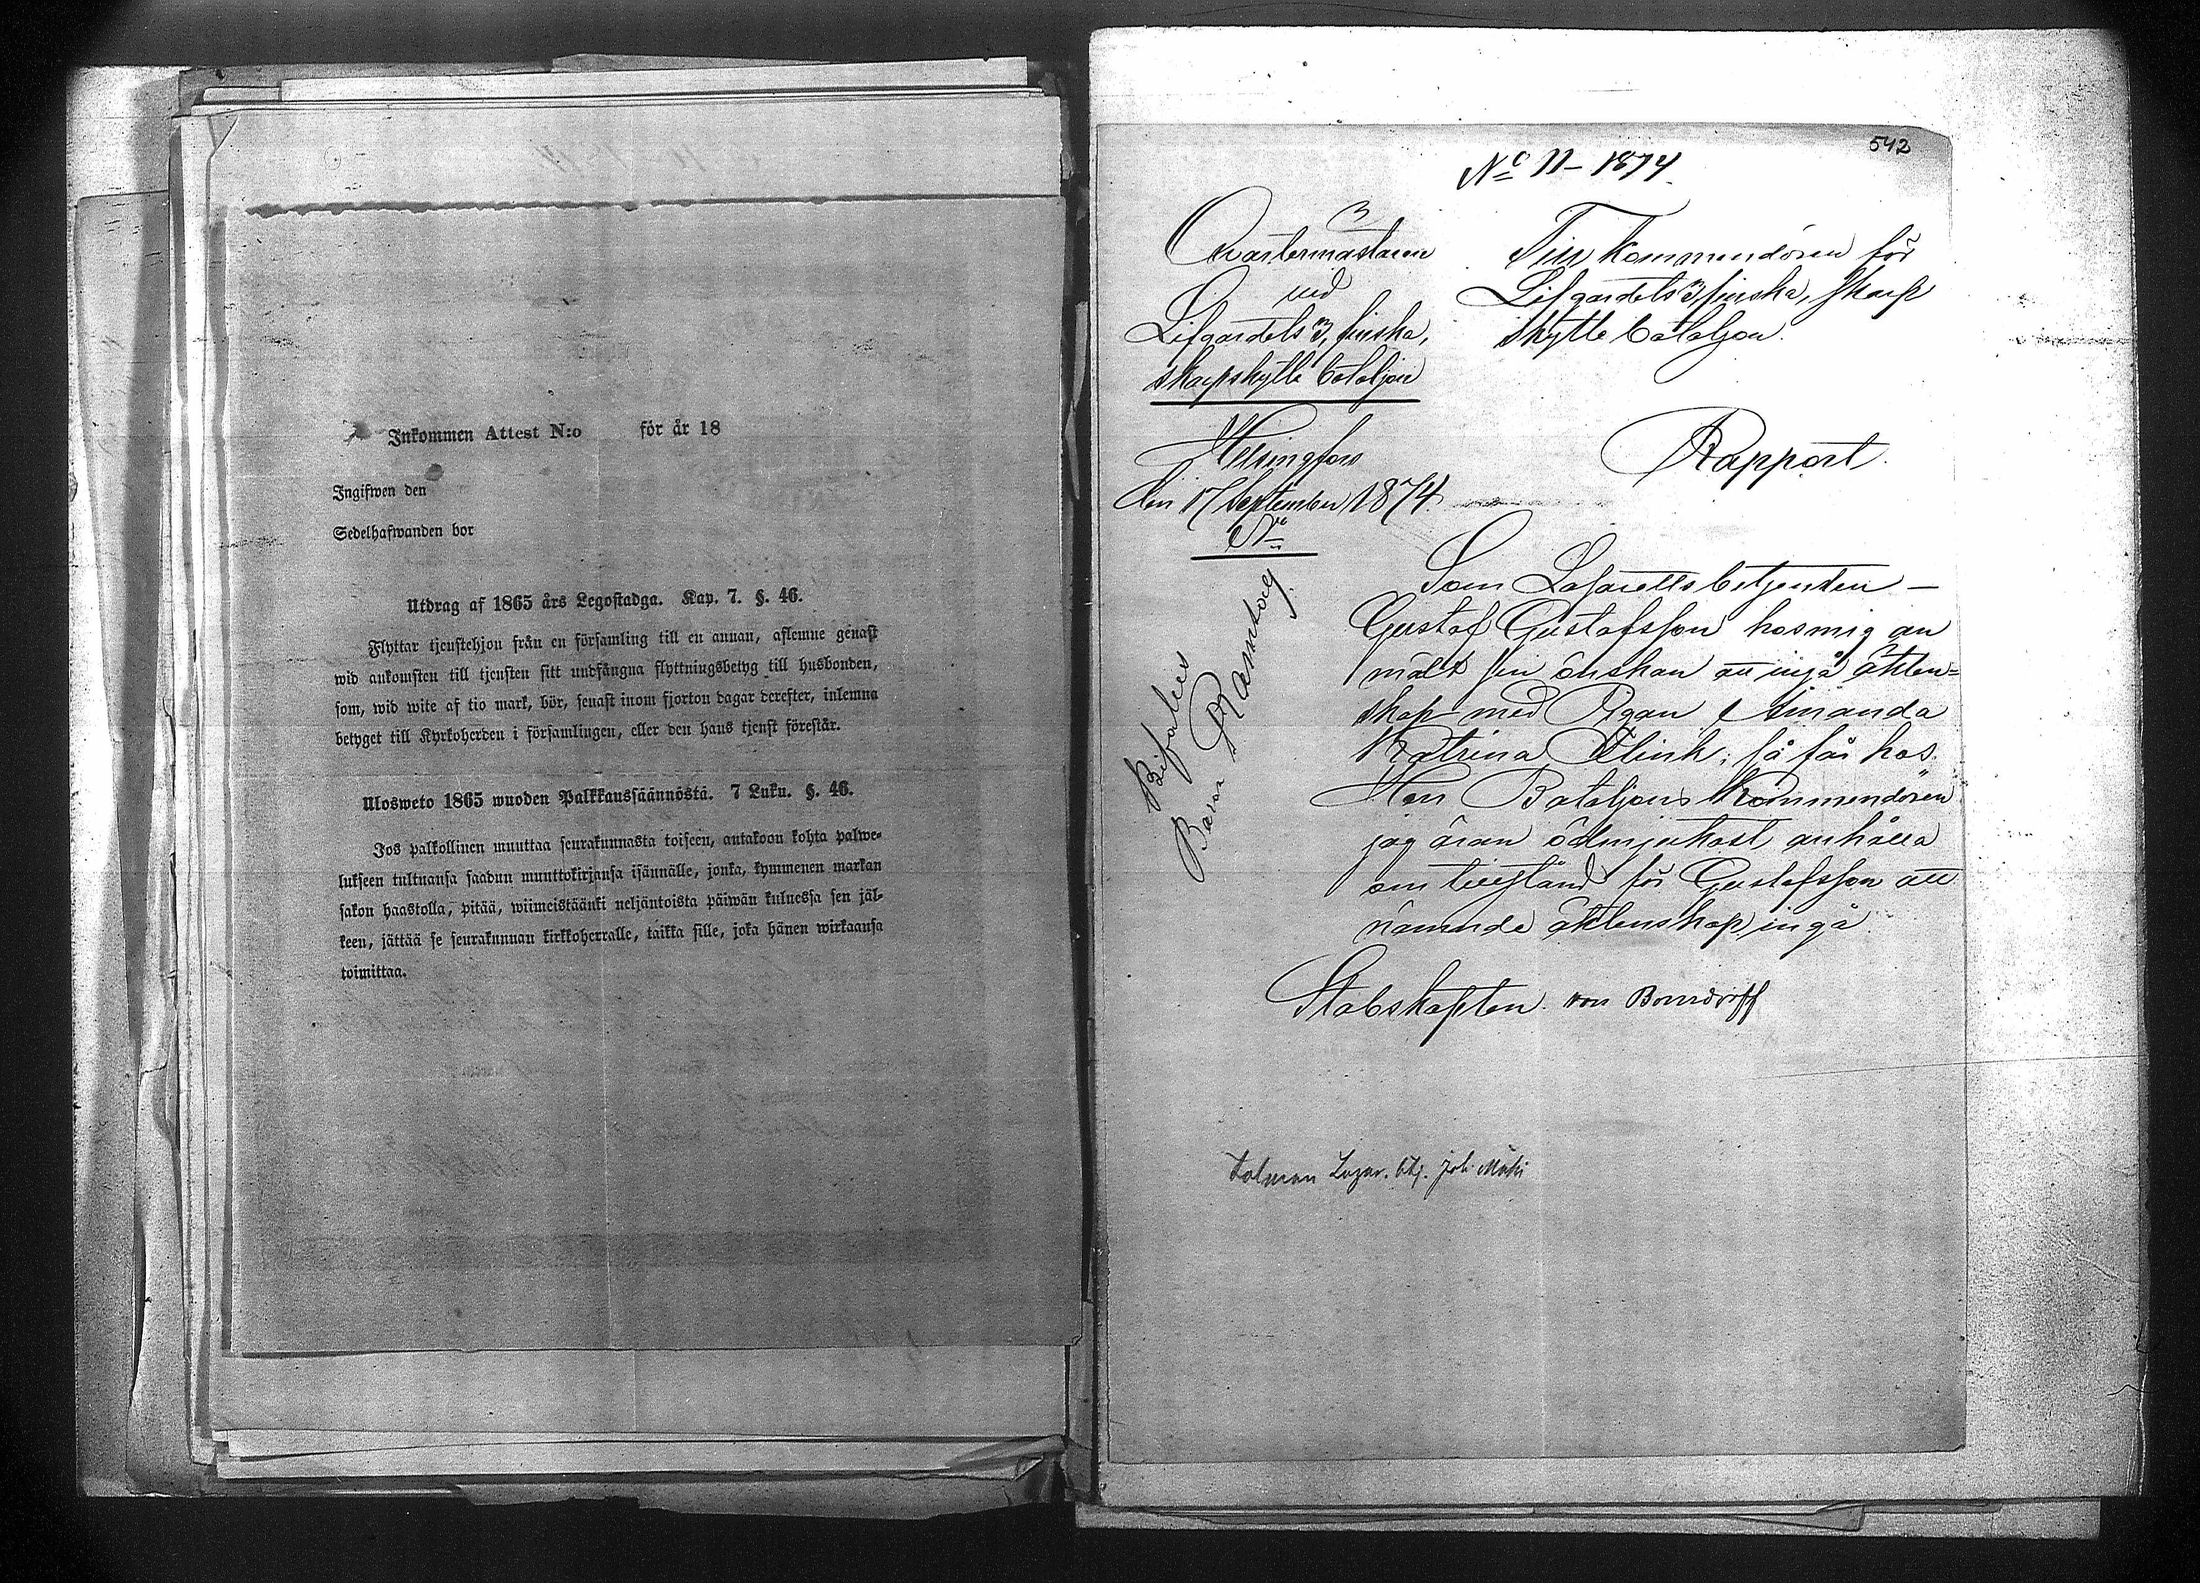 Inkommen Attest N:o för år 18
Ingifwen den
Sedelhafwanden bor
Utdrag af 1865 års Legostadga. Kap. 7. §. 46.
Flyttar tjenstehjon från en församling till en annan, aflemne genast
wid ankomsten till tjensten sitt undfångna flyttningsbetyg till husbonden,
som, wid wite af tio mark, bör, senast inom fjorton dagar derefter, inlemna
betyget till Kyrkoherden i församlingen, eller den hans tjenst förestår.
Ulosweto 1865 wuoden Palkkaussäännöstä. 7 Luku. §. 46.
Jos palkollinen muuttaa seurakunnasta toiseen, antakoon kohta palwe-
lukseen tultuansa saadun muuttokirjansa isännälle, jonka, kymmenen markan
sakon haastolla, pitää, wiimeistäänki neljäntoista päiwän kuluessa sen jäl-
keen, jättää se seurakunnan kirkkoherralle, taikka sille, joka hänen wirkaansa
toimittaa.
542
No 11-1874
Qvartermästaren
vid
Lifgardets 3, finska,
skarpskytte bataljon
Helsingfors
den 17 September 1874
No
Bifalles
Baron Ramsay
Till Kommendören för
Lifgardets 3, finska, skarp
skytte bataljon.
Rapport.
Som Lasarettsbetjenten –
Gustaf Gustafsson hos mig an
mält sin önskan att ingå äkten=
skap med Pigan Amanda
Katrina Flink; så får hos
Herr Bataljons Kommendören
jag äran ödmjukast anhålla
om tillstånd för Gustafsson att
nämnde äktenskap ingå.
Stabskapten von Bonsdorff
Talman Lazar. btj. Joh. Mäki